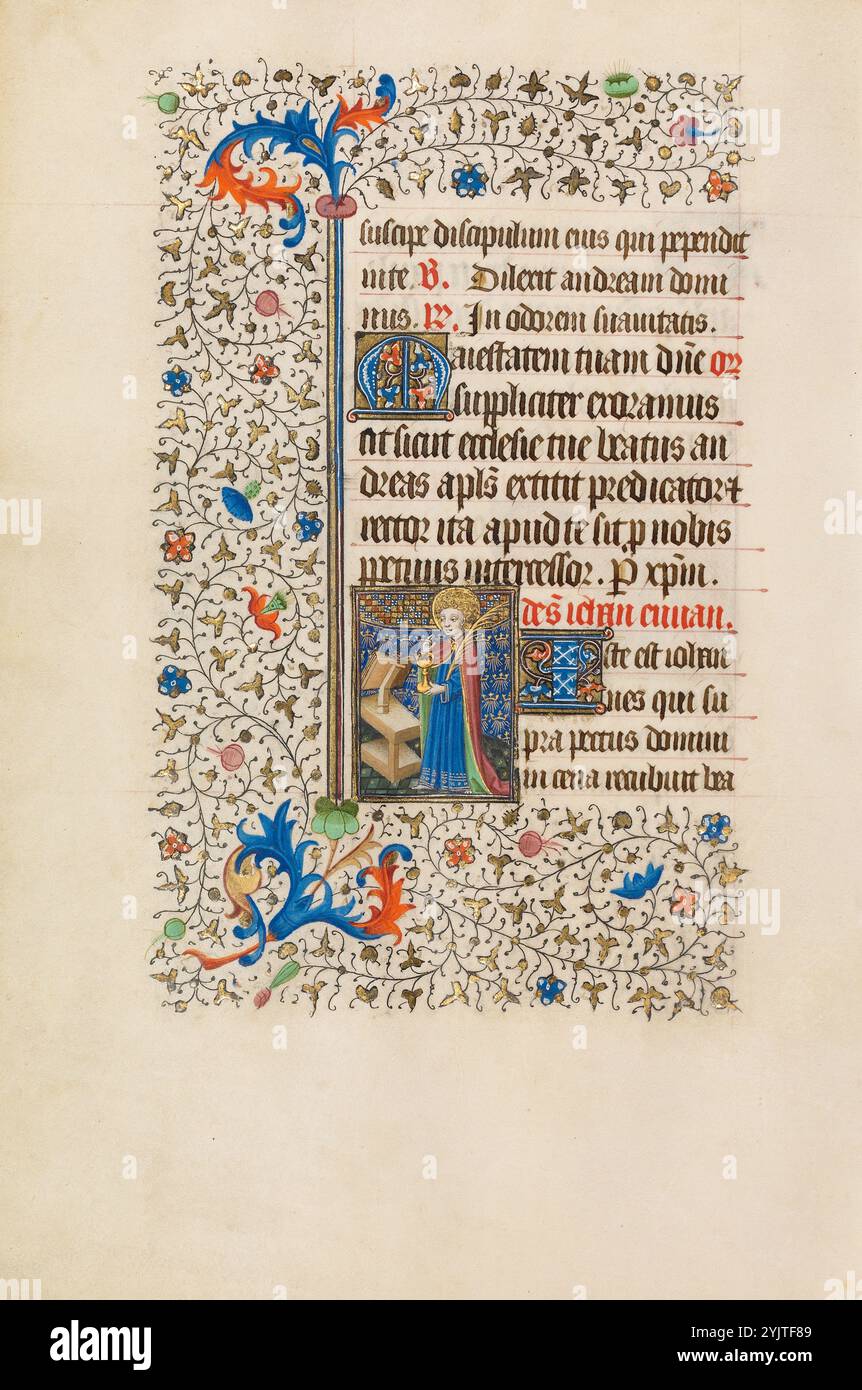 suscipe discipulum eius qui pependit
in te. V. Dilexit andream domi
nus. R. In odorem suavitatis.
Maiestatem tuam dñe or
suppliciter exoramus
ut sicut ecclesie tue beatus an
dreas apl̃s extitit predicator et
rector ita apud te sit p nobis
ppetuus intercessor. P xp̃m.
de s̃ iohan euuan.
Iste est iohan
nes qui su
pra pectus domini
in cena recubuit bea
alamy
Image ID: 2YJTF89
www.alamy.com